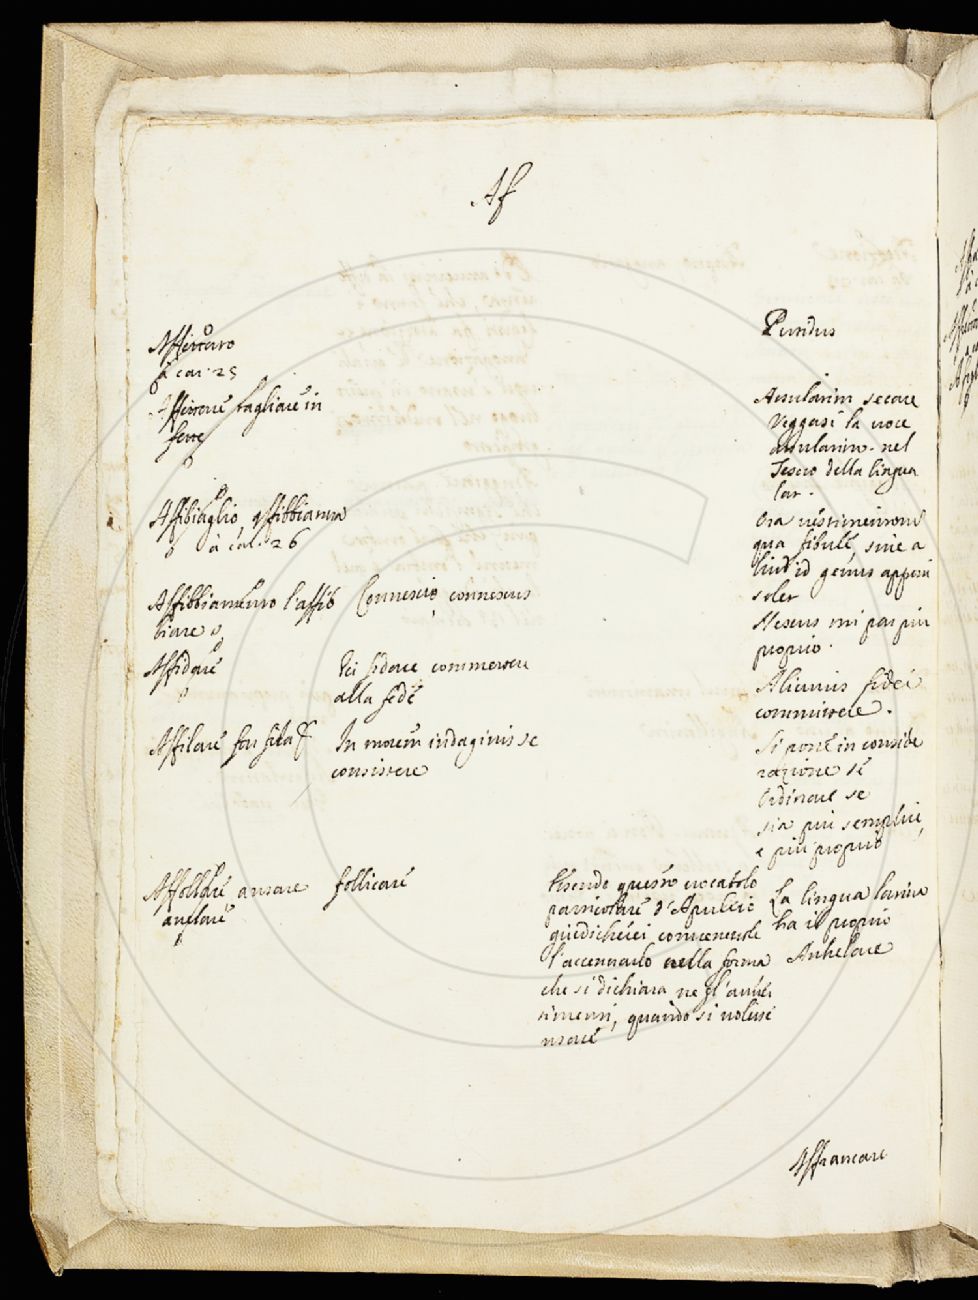 Af
Affettato
à car. 25
Affettare tagliare in
fette
Affibiaglio, affibbiatura
à car. 26
Affibbiamento l'affib
biare
Affidare
Affilare
Affollare ansare
anelare
Connexio connexus
fidare commettere
alla fede
In morem indaginis se
consistere
follicare
Essendo questo vocabolo
particolare d'Apuleio
giudicherei convenevole
l'accennarlo nella forma
che si dichiara negl'auuer
timenti, quando si volesse
usare
Assulatim secare
Veggasi la voce
assulatim nel
Tesoro della lingua
lat.
ora vestimentorum
qua fibulae, sive a
liud id genus apponi
solet
Nexus mi par piu
proprio.
Alicuius fidei
committere.
Si pone in conside
razione se
Ordinare se
sia piu semplice,
e piu proprio
La lingua latina
ha il proprio
Anhelare
Affrancare